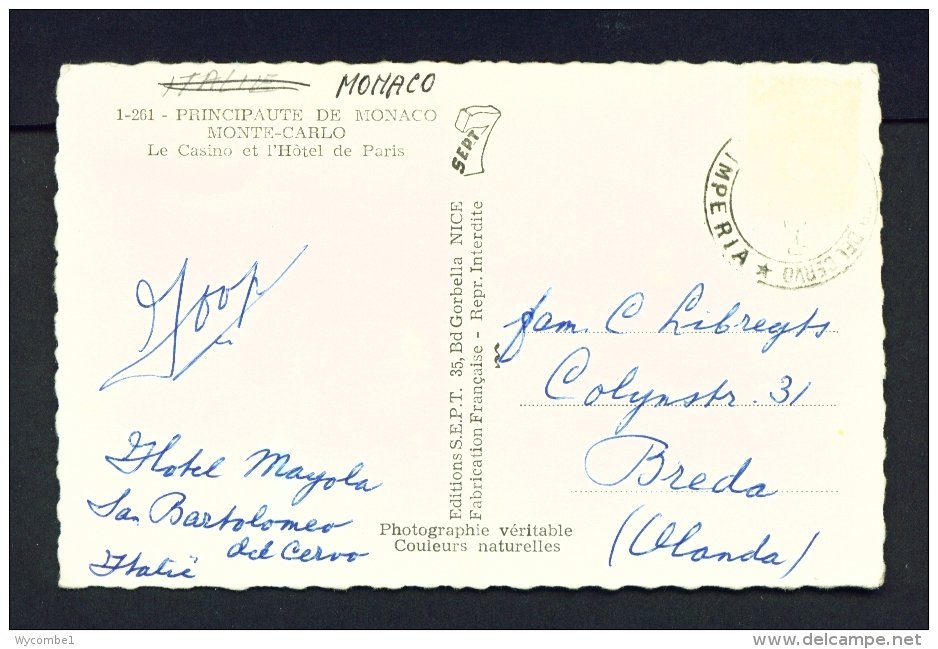 ITALIE MONACO
1-261 - PRINCIPAUTE DE MONACO
MONTE-CARLO
Le Casino et l'Hôtel de Paris
SEPT
Editions S.E.P.T. 35, Bd Gorbella NICE
Fabrication Française - Repr. Interdite
Photographie véritable
Couleurs naturelles
IMPERIA ★ DEL CERVO
Joop
Hotel Mayola
San Bartolomeo
del Cervo
Italië
fam. C Libregts
Colynstr. 31
Breda
(Olanda)
Wycombe1
www.delcampe.net